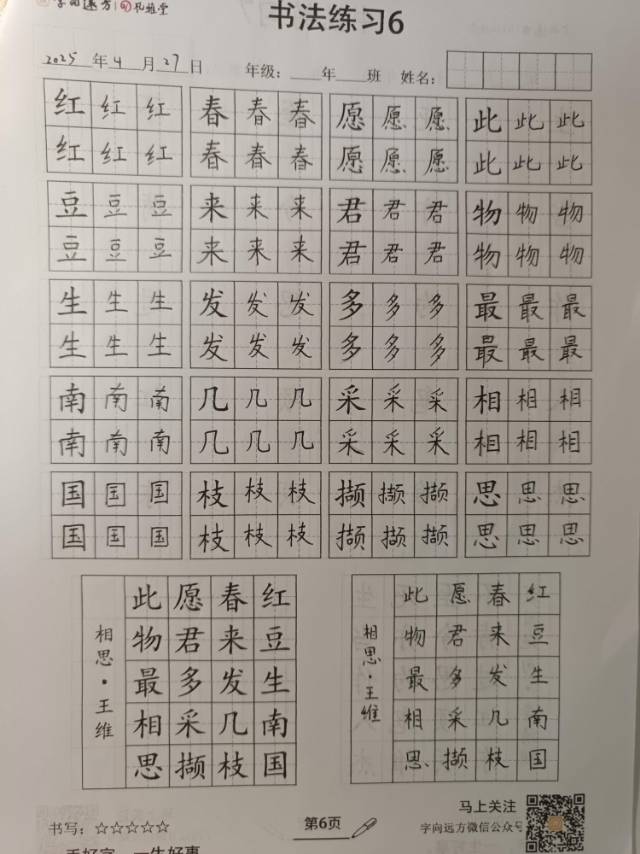 字向远方 孔雄堂
书法练习6
2025年4月27日 年级:___年___班 姓名:
红红红 春春春 愿愿愿 此此此
红红红 春春春 愿愿愿 此此此
豆豆豆 来来来 君君君 物物物
豆豆豆 来来来 君君君 物物物
生生生 发发发 多多多 最最最
生生生 发发发 多多多 最最最
南南南 几几几 采采采 相相相
南南南 几几几 采采采 相相相
国国国 枝枝枝 撷撷撷 思思思
国国国 枝枝枝 撷撷撷 思思思
红豆生南国
春来发几枝
愿君多采撷
此物最相思
相思·王维
红豆生南国
春来发几枝
愿君多采撷
此物最相思
相思·王维
书写:☆☆☆☆☆
第6页
马上关注
字向远方微信公众号
手好字 一生好事